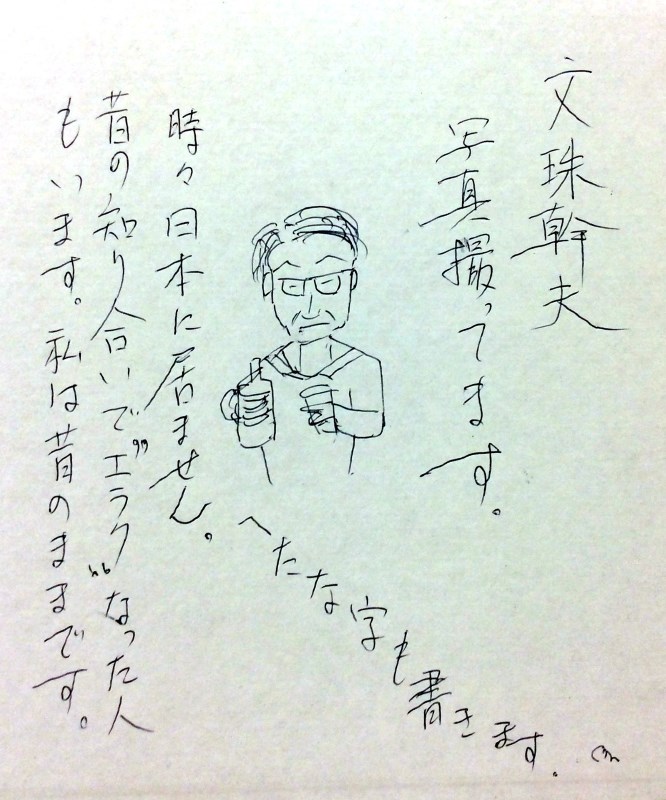 文珠幹夫
写真撮ってます。
時々日本に居ません。
昔の知り合いで"エラク"なった人
もいます。私は昔のままです。
へたな字も書きます。